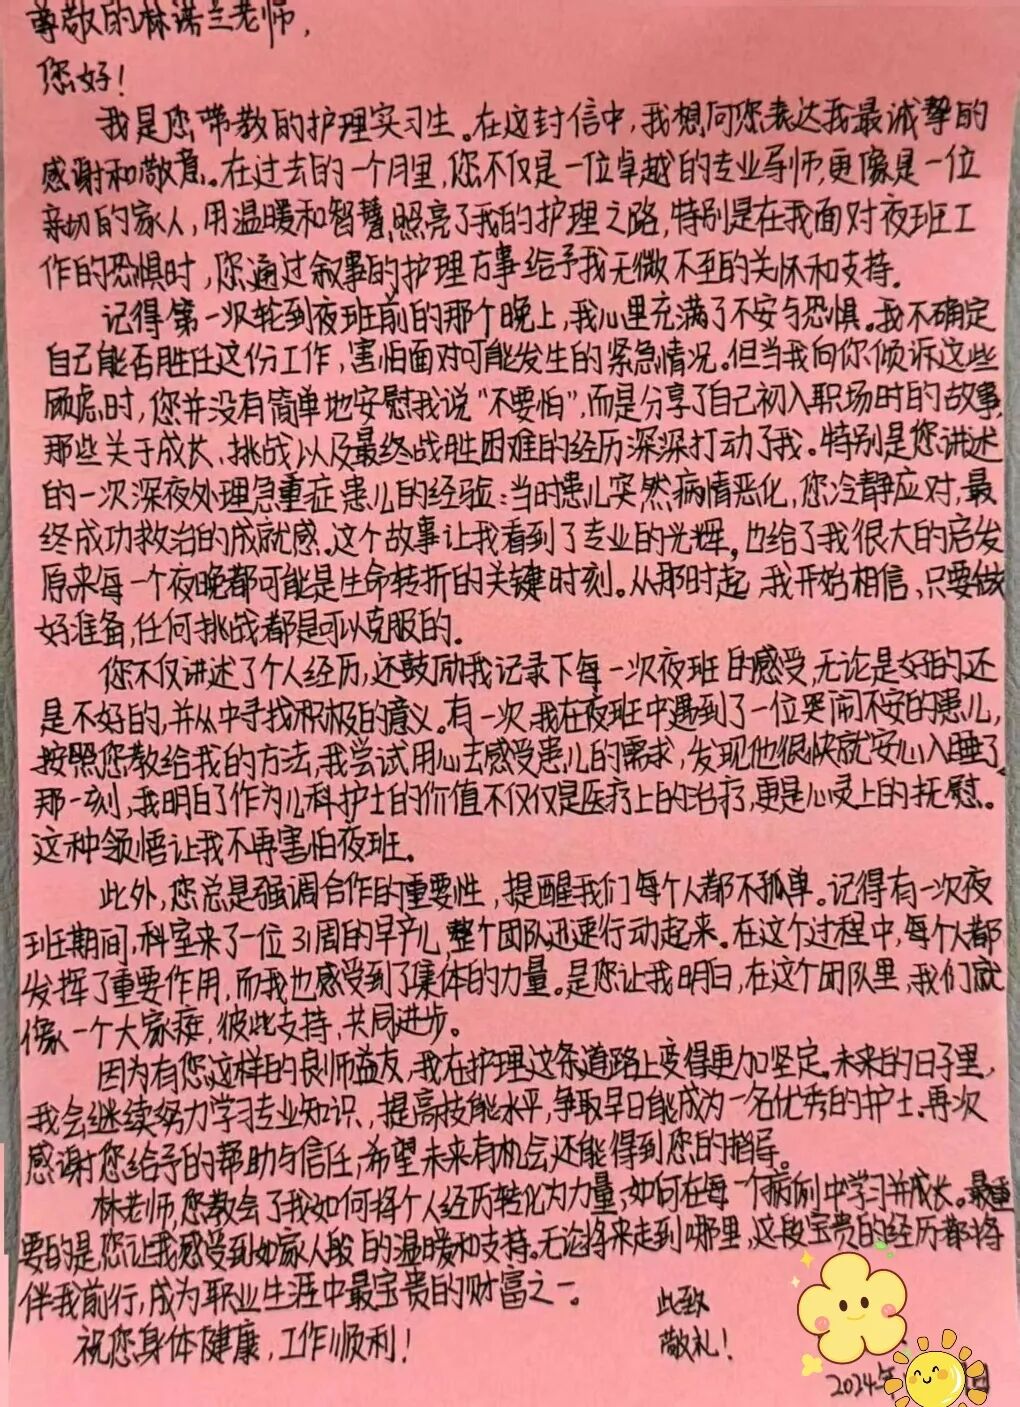 尊敬的林诺兰老师，
您好！
我是您带教的护理实习生。在这封信中，我想向您表达我最诚挚的
感谢和敬意。在过去的一个月里，您不仅是一位卓越的专业导师，更像是一位
亲切的家人，用温暖和智慧，照亮了我的护理之路，特别是在我面对夜班工
作的恐惧时，您通过叙事的护理方事给予我无微不至的关怀和支持。
记得第一次轮到夜班前的那个晚上，我心里充满了不安与恐惧。我不确定
自己能否胜任这份工作，害怕面对可能发生的紧急情况。但当我向你倾诉这些
顾虑时，您并没有简单地安慰我说“不要怕”，而是分享了自己初入职场时的故事，
那些关于成长、挑战以及最终战胜困难的经历深深打动了我。特别是您讲述
的一次深夜处理急重症患儿的经验：当时患儿突然病情恶化，您冷静应对，最
终成功救治的成就感。这个故事让我看到了专业的光辉，也给了我很大的启发
原来每一个夜晚都可能是生命转折的关键时刻。从那时起，我开始相信，只要做
好准备，任何挑战都是可以克服的。
您不仅讲述了个人经历，还鼓励我记录下每一次夜班的感受，无论是好的还
是不好的，并从中寻找积极的意义。有一次，我在夜班中遇到了一位哭闹不安的患儿，
按照您教给我的方法，我尝试用心去感受患儿的需求，发现他很快就安心入睡了。
那一刻，我明白了作为儿科护士的价值不仅仅是医疗上的治疗，更是心灵上的抚慰。
这种领悟让我不再害怕夜班。
此外，您总是强调合作的重要性，提醒我们每个人都不孤单。记得有一次夜
班期间，科室来了一位31周的早产儿，整个团队迅速行动起来。在这个过程中，每个人都
发挥了重要作用，而我也感受到了集体的力量。是您让我明白，在这个团队里，我们就
像一个大家庭，彼此支持，共同进步。
因为有您这样的良师益友，我在护理这条道路上变得更加坚定。未来的日子里，
我会继续努力学习专业知识，提高技能水平，争取早日能成为一名优秀的护士。再次
感谢您给予的帮助与信任，希望未来有机会还能得到您的指导。
林老师，您教会了我如何将个人经历转化为力量，如何在每一个病例中学习并成长。最重
要的是，您让我感受到如家人般的温暖和支持。无论将来走到哪里，这段宝贵的经历都将
伴我前行，成为职业生涯中最宝贵的财富之一。
此致
祝您身体健康，工作顺利！
敬礼！
2024年 日